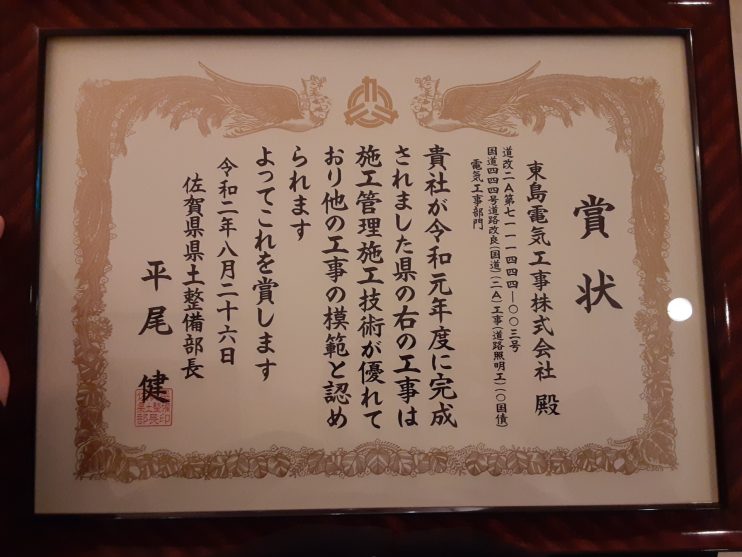 賞状
東島電気工事株式会社 殿
道改二A第七一一一四四四―〇〇三号
国道四四四号道路改良(国道)(二A)工事(道路照明工)(〇国債)
電気工事部門
貴社が令和元年度に完成
されました県の右の工事は
施工管理施工技術が優れて
おり他の工事の模範と認め
られます
よってこれを賞します
令和二年八月二十六日
佐賀県県土整備部長
平尾 健